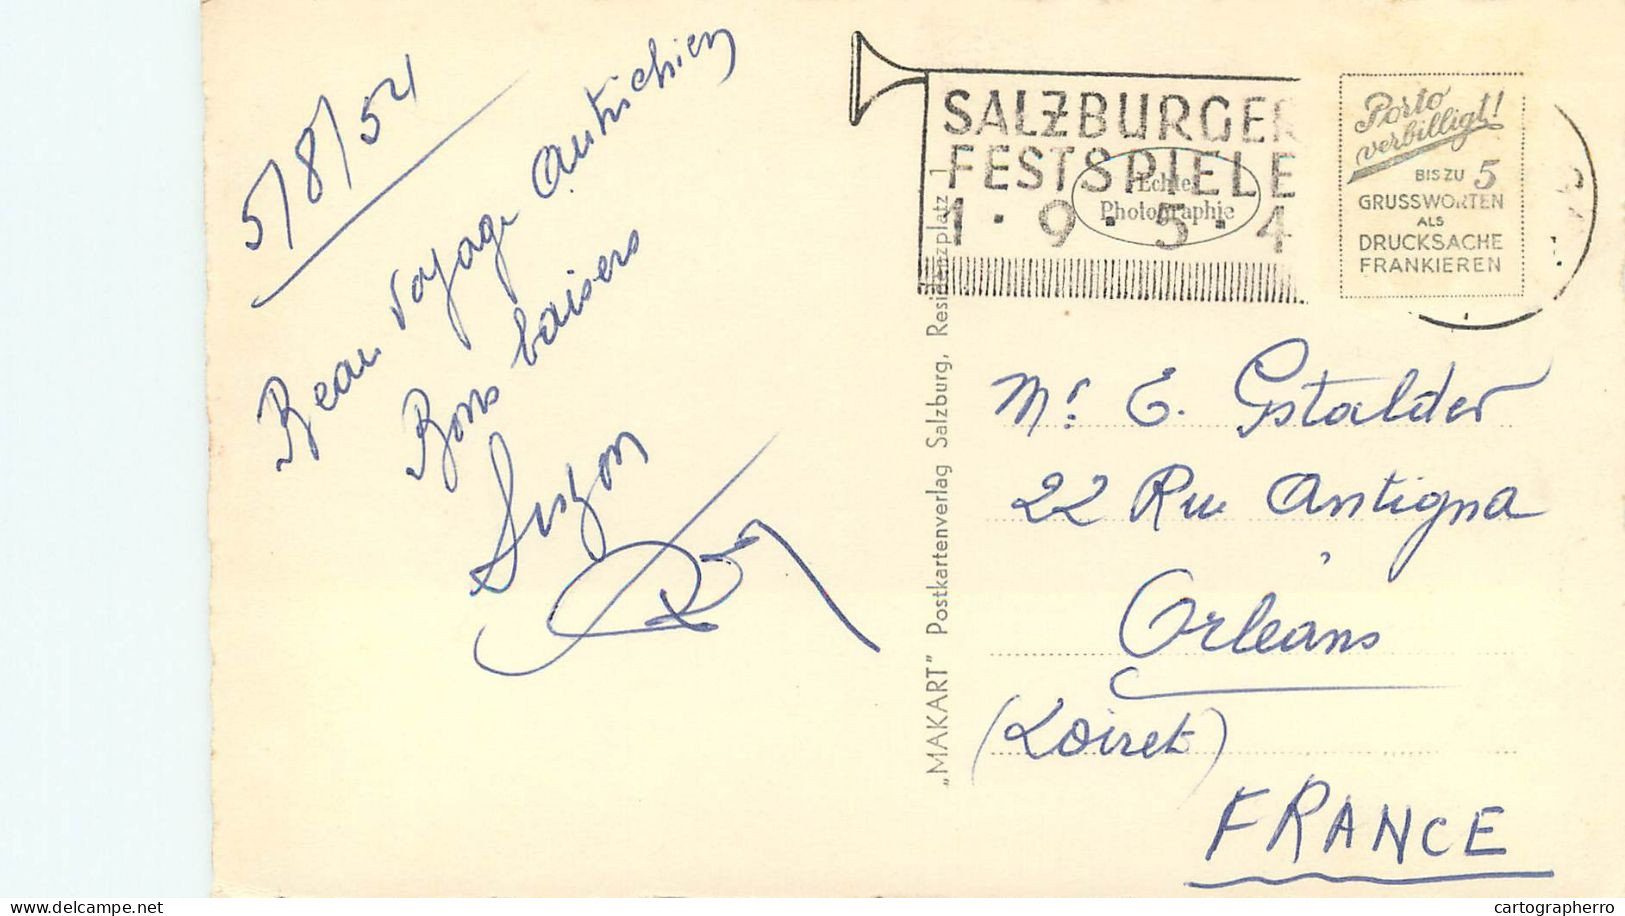 5/8/54
Beau voyage autrichien
Bons baisers
Suzon
SALZBURGER
FESTSPIELE
1·9·5·4
Echte
Photographie
Porto
verbilligt!
BIS ZU 5
GRUSSWORTEN
ALS
DRUCKSACHE
FRANKIEREN
„MAKART” Postkartenverlag Salzburg, Residenzplatz 1
Mr. E. Gstalder
22 Rue Antigna
Orléans
(Loiret)
FRANCE
www.delcampe.net
cartographerro